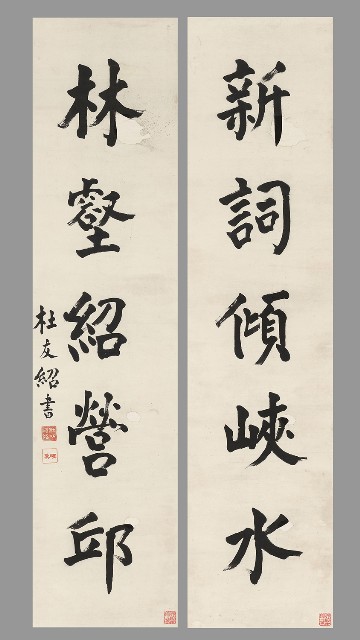 新詞傾峽水
林壑紹營邱
杜友紹書